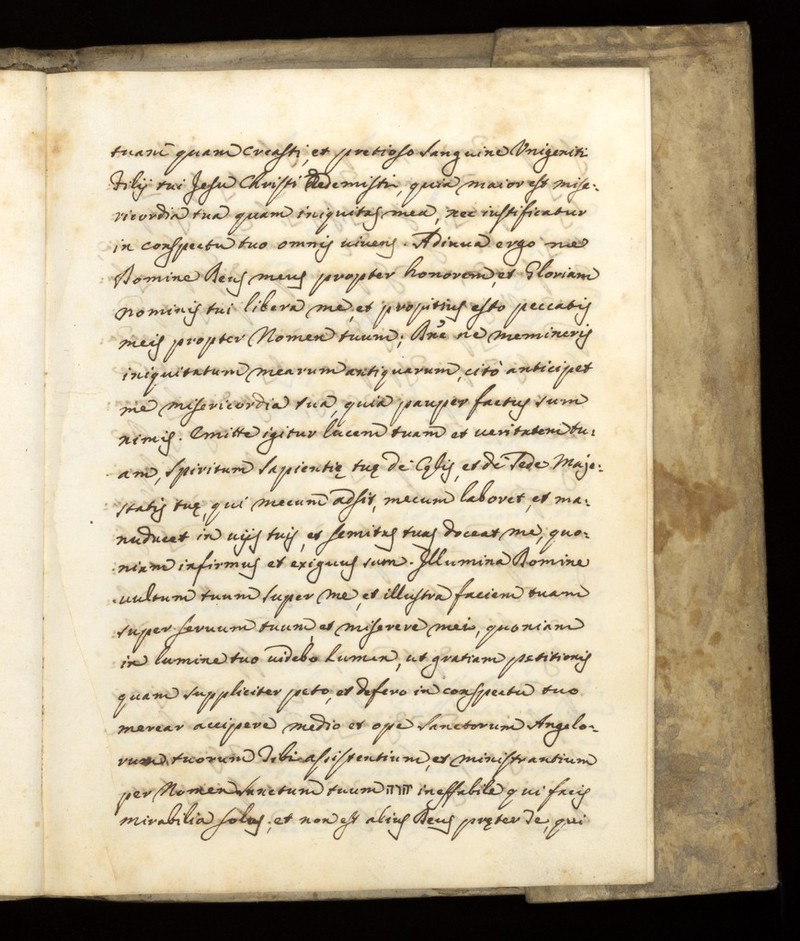 tuam quam creasti, et pretioso sanguine Unigeniti
Filij tui Jesu Christi Redemisti, quia maior est mise:
ricordia tua quam iniquitas mea, nec iustificatur
in conspectu tuo omnis uiuens. Adiuua ergo me
Domine Deus meus propter honorem, et Gloriam
nominis tui libera me, et propitius esto peccatis
meis propter Nomen tuum; Dñe ne memineris
iniquitatum mearum antiquarum, citò anticipet
me misericordia tua, quia pauper factus sum
nimis. Emitte igitur lucem tuam et ueritatem tu:
am, Spiritum Sapientię tuę de Cęlis, et de Sede Maje:
statis tuę, qui mecum adsit, mecum laboret, et ma:
nuducet in uijs tuis, et semitas tuas doceat me, quo:
niam infirmus et exiguus sum. Illumina Domine
uultum tuum super me, et illustra faciem tuam
super seruum tuum, et miserere mei, quoniam
in lumine tuo uidebo Lumen, ut gratiam petitionis
quam suppliciter peto, et defero in conspectu tuo
merear accipere medio et ope Sanctorum Angelo:
rum tuorum Tibi assistentium, et ministrantium
per Nomen Sanctum tuum יהוה ineffabile qui facis
mirabilia solus; et non est alius Deus pręter Te, qui